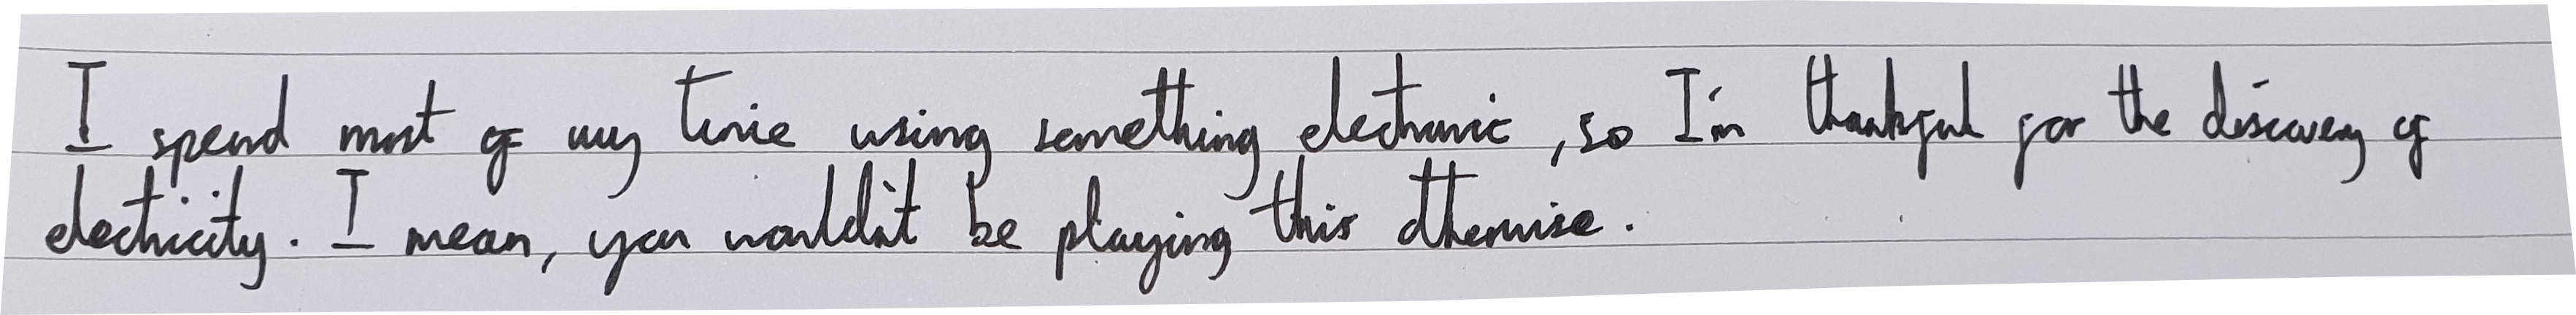 I spend most of my time using something electronic, so I'm thankful for the discovery of
electricity. I mean, you wouldn't be playing this otherwise.